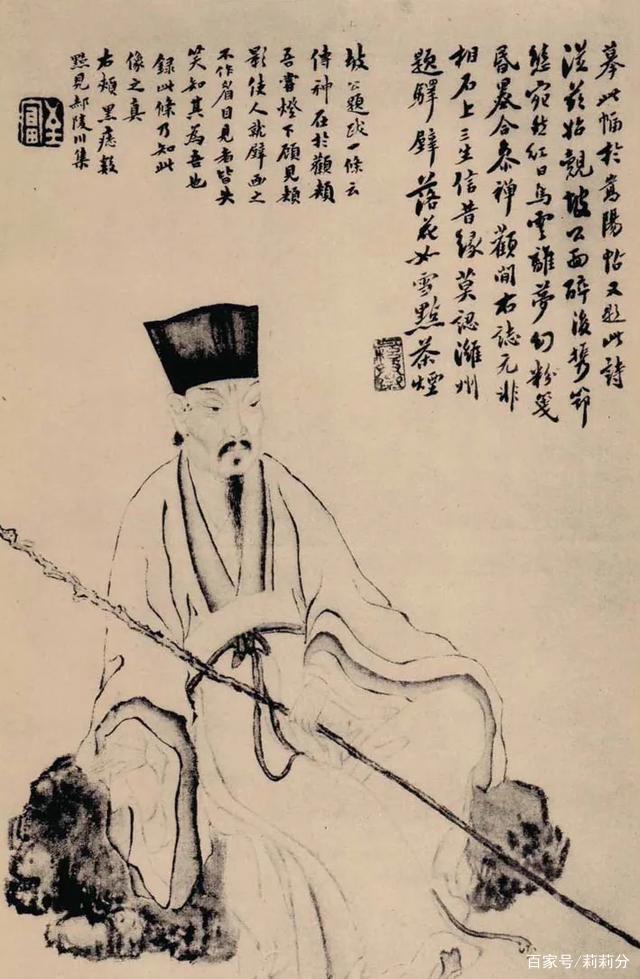 摹此幅於嵩陽帖又題此詩
從茲始覿坡公面醉後攜笻
態宛然紅日烏雲離夢幻粉箋
昏墨合參禪顴間右誌元非
相石上三生信昔緣莫認濰州
題驛壁落花如雪點茶煙
坡公題跋一條云
傳神在於顴頰
吾嘗燈下顧見頰
影使人就壁畫之
不作眉目見者皆失
笑知其為吾也
錄此條乃知此
像之真
右頰黑痣數
點見郝陵川集
百家号/莉莉分